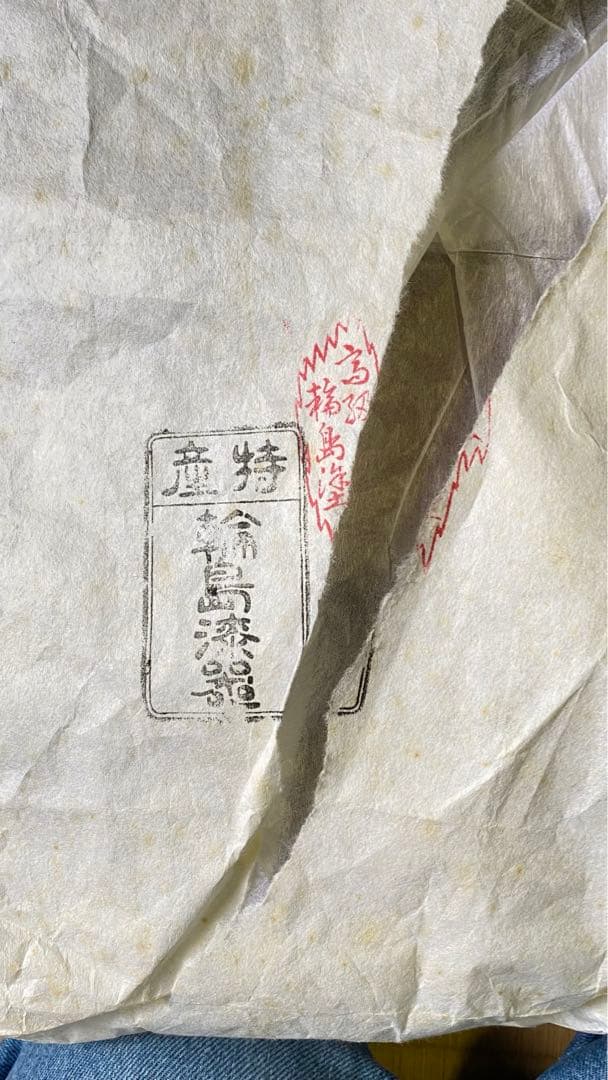 特産
輪島漆器
高級
輪島塗